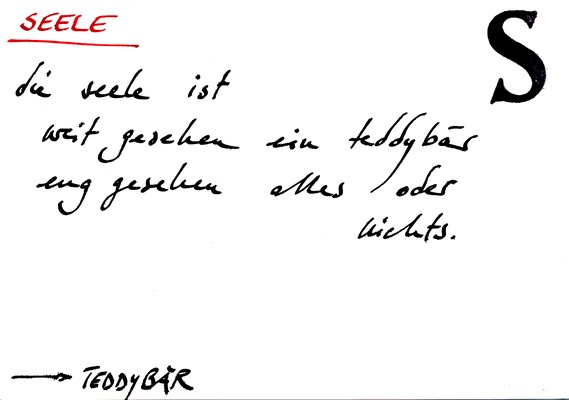 SEELE
S
die seele ist
weit gesehen ein teddybär
eng gesehen alles oder
nichts.
→ TEDDYBÄR